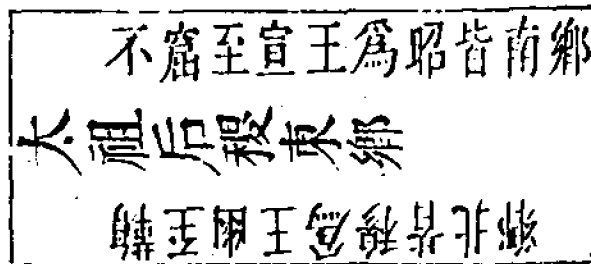 不窟至宣王爲昭皆南鄉
太祖后稷東鄉
鞠至幽王爲穆皆北鄉